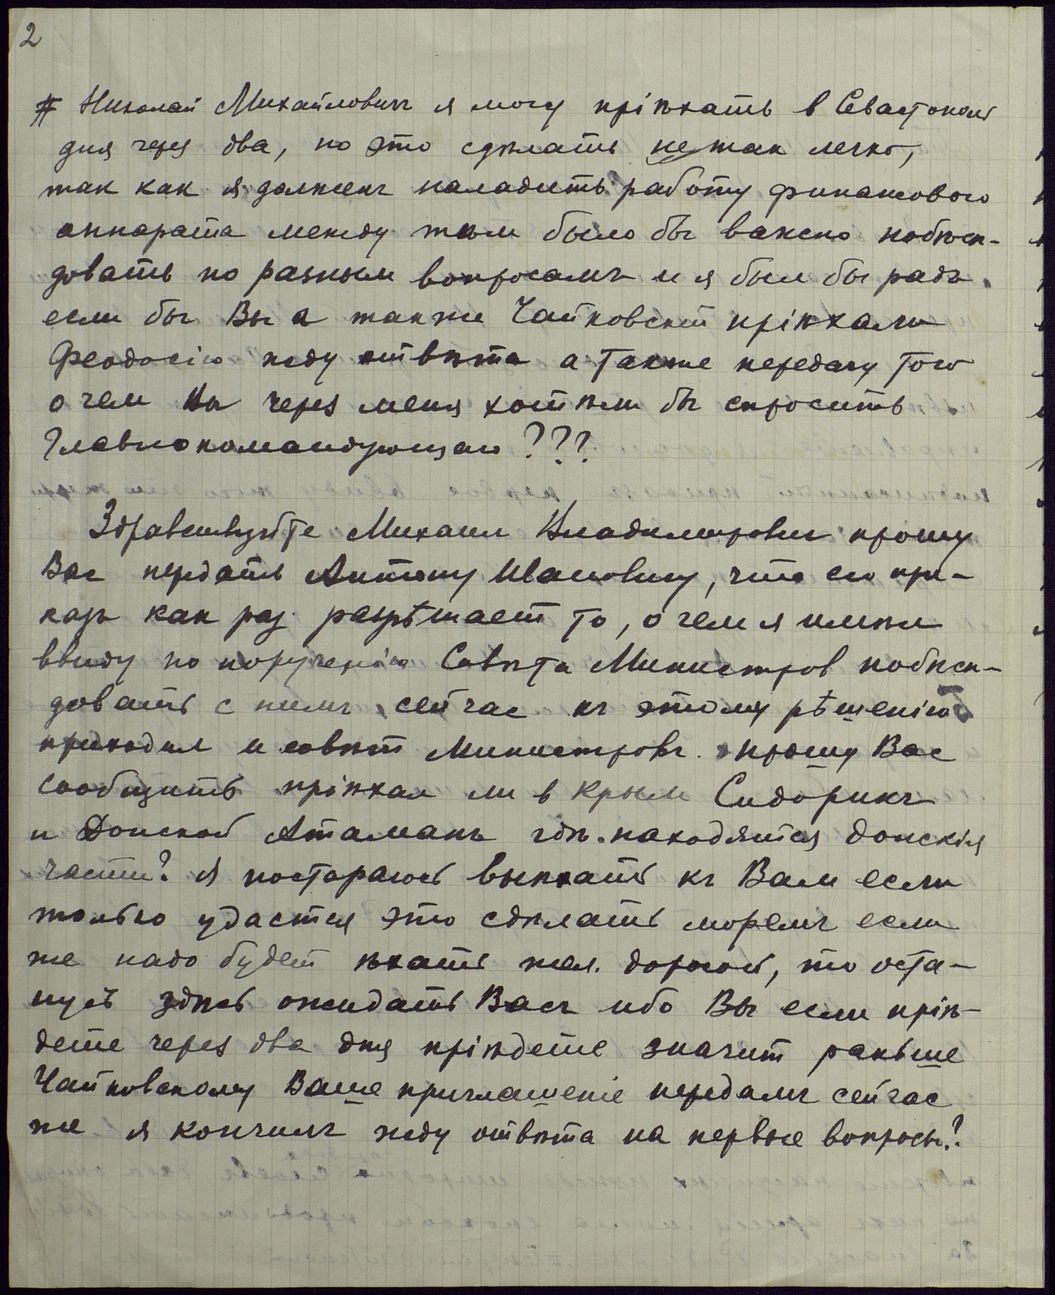 2
# Николай Михайловичъ я могу пріѣхать в Севастополь
дня через два, но это сдѣлать не так легко,
так как я долженъ наладить работу финансового
аппарата между тѣм было бы важно побѣсѣ-
довать по разным вопросамъ и я был бы радъ
если бы Вы а также Чайковскій пріѣхали
Феодосію жду отвѣта а также передачу того
о чем Вы через меня хотѣли бы спросить
Главнокомандующаго ???
Здравствуйте Михаил Владимировичъ прошу
Вас передать Антону Ивановичу, что его при-
казъ как раз разрѣшает то, о чем я имѣл
ввиду по порученію Совѣта Министров побѣсѣ-
довать с нимъ, сейчас къ этому рѣшенію
приходил и совѣт Министровъ. прошу Вас
сообщить пріѣхал ли в Крым Сидоринъ
и Донской Атаманъ гдѣ находятся донскія
части? Я постараюсь выѣхать къ Вам если
только удастся это сдѣлать моремъ если
же надо будет ѣхать жел. дорогой, то оста-
нусь здѣсь ожидать Васъ ибо Вы если пріѣ-
дете через два дня пріѣдете значит раньше
Чайковскому Ваше приглашеніе передамъ сейчас
же я кончилъ жду отвѣта на первые вопросы?